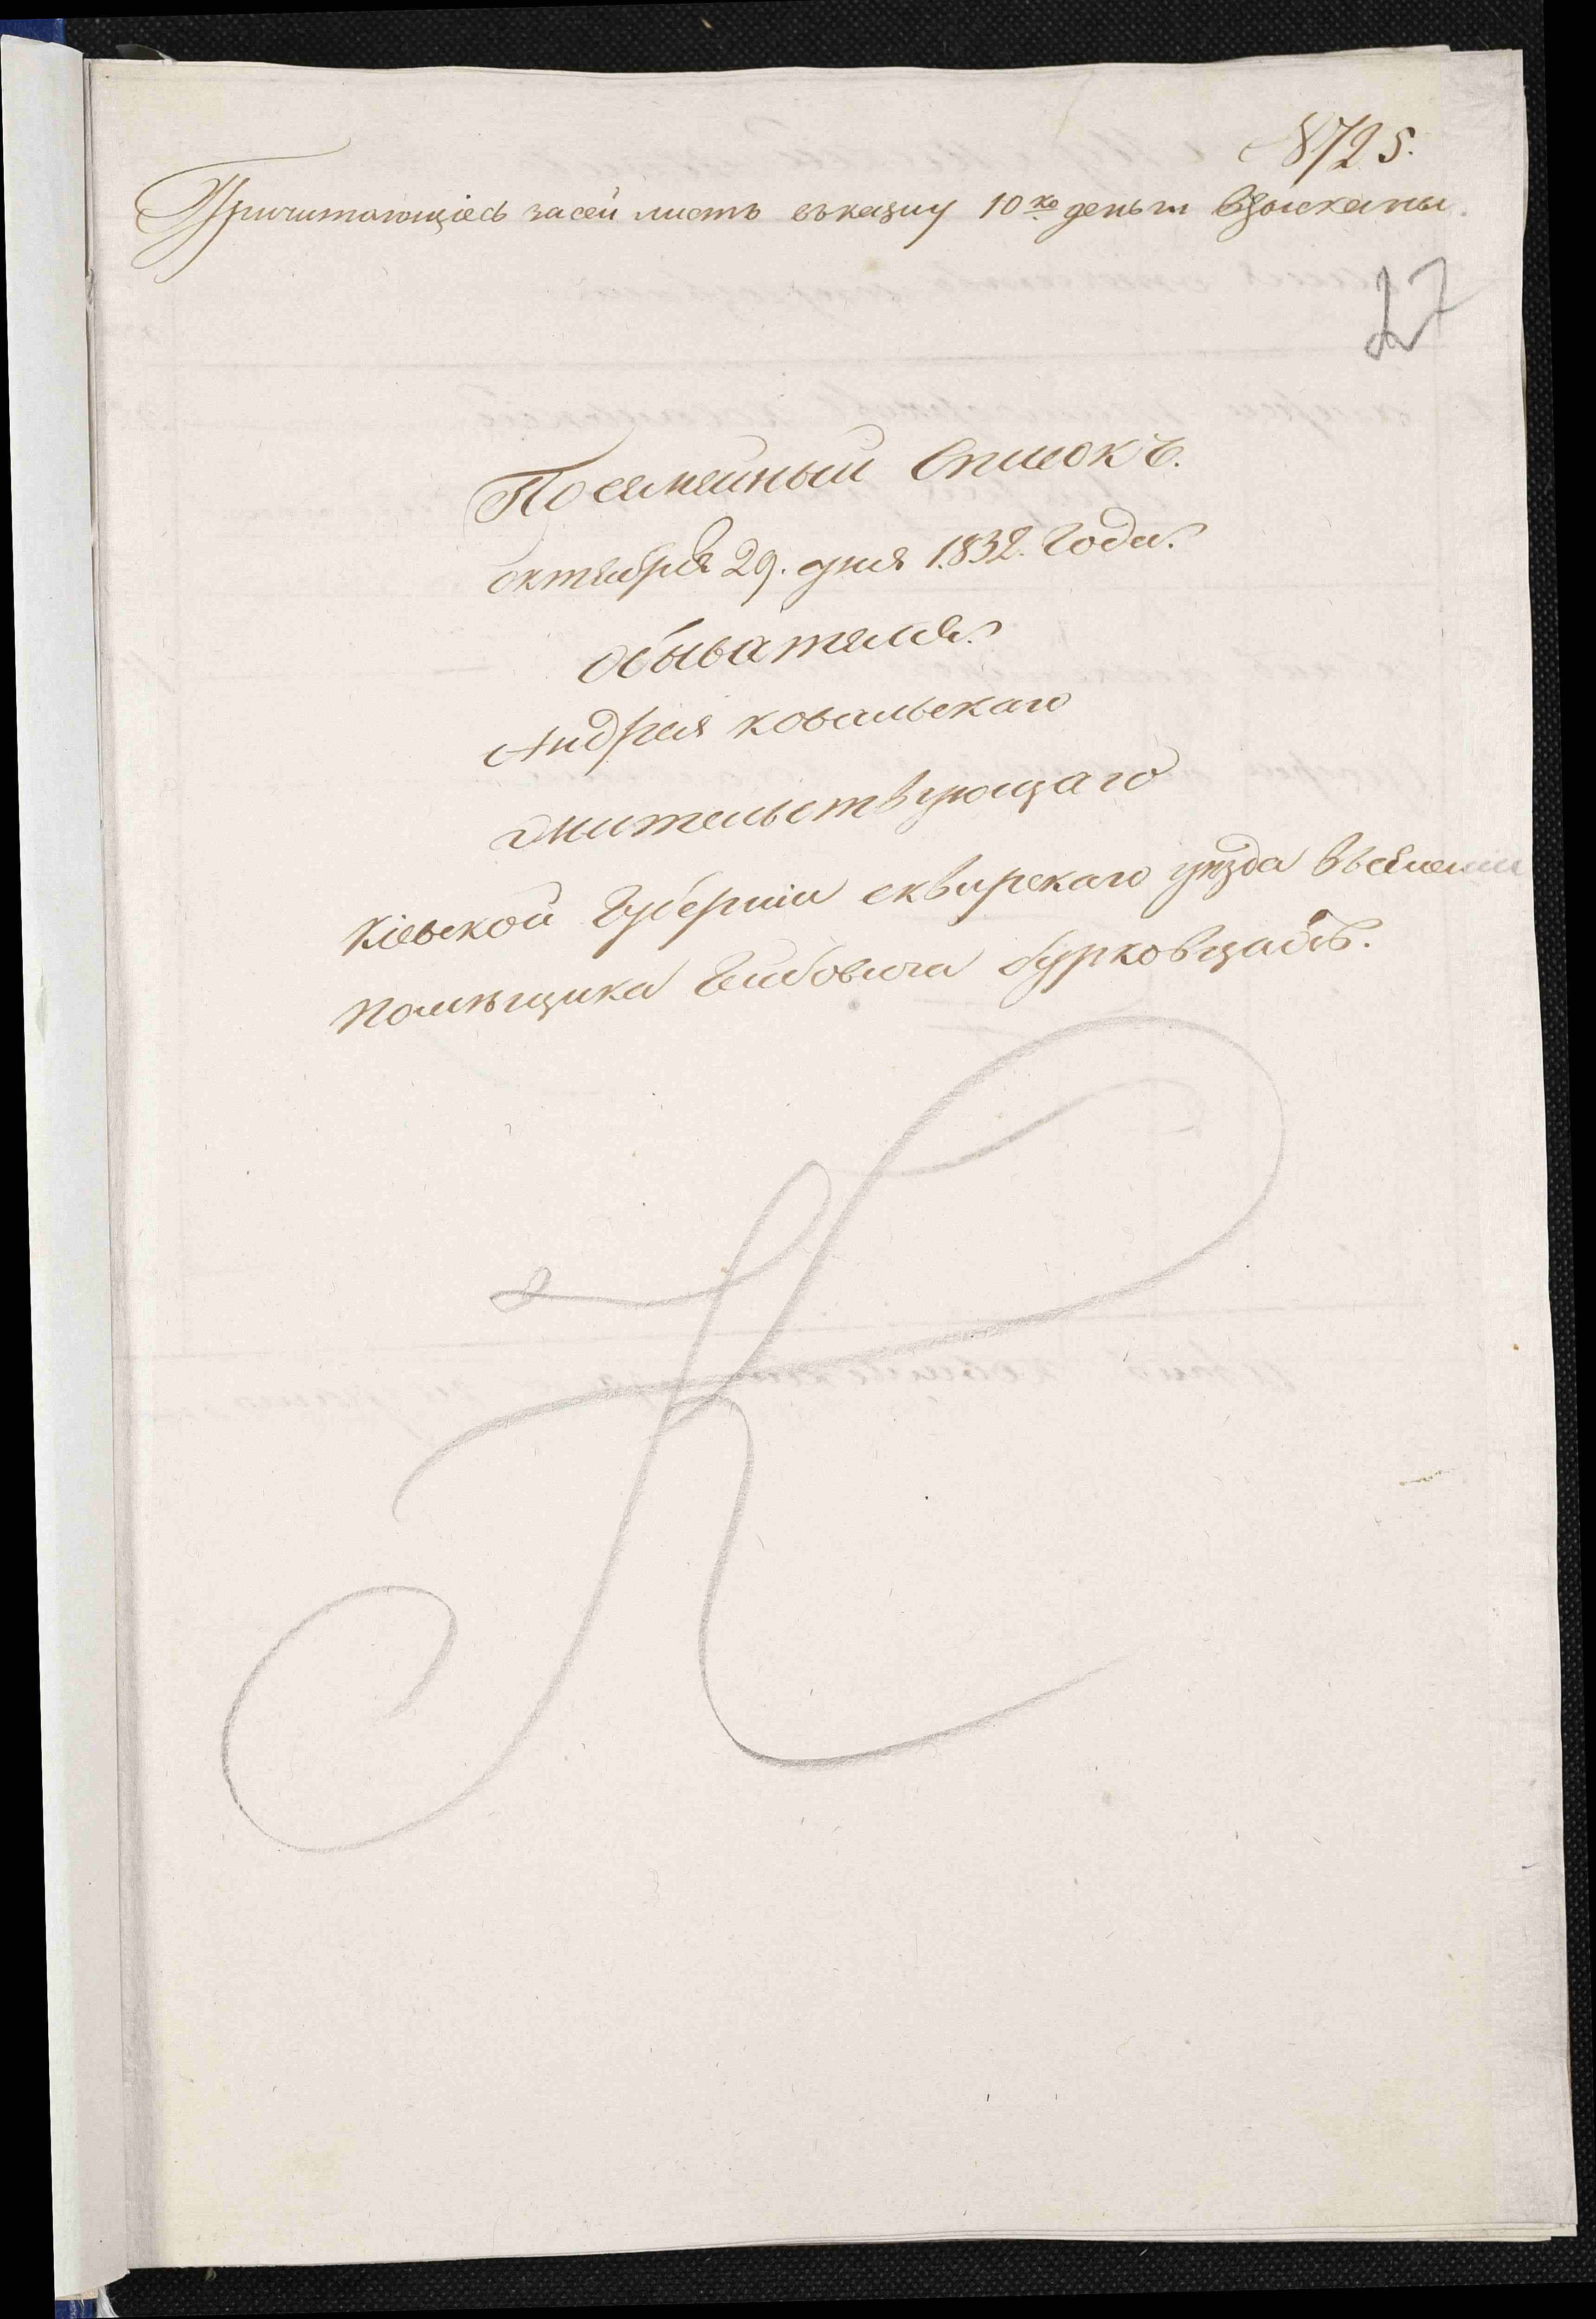 № 725.
Причитающіесь за сей листъ въ казну 10 ко деньги взысканы.
27
Посемейный Списокъ.
октября 29. дня 1832. Года.
обывателя.
Андрея ковальскаго
жительствующаго
Кіевской Губерніи сквирскаго уѣзда въ селеніи
помѣщика бурковцахъ.
К